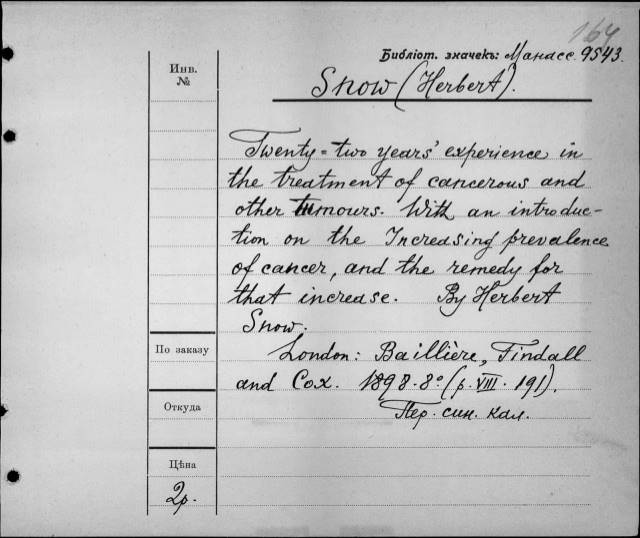 164
Библіот. значекъ: Манасс. 9543.
Инв.
№
Snow (Herbert).
Twenty=two years' experience in
the treatment of cancerous and
other tumours. With an introduc-
tion on the Increasing prevalence
of cancer, and the remedy for
that increase. By Herbert
Snow.
По заказу
London: Baillière, Tindall
and Cox. 1898. 8° (p. VIII. 191).
Откуда
Пер. син. кал.
Цѣна
2р.